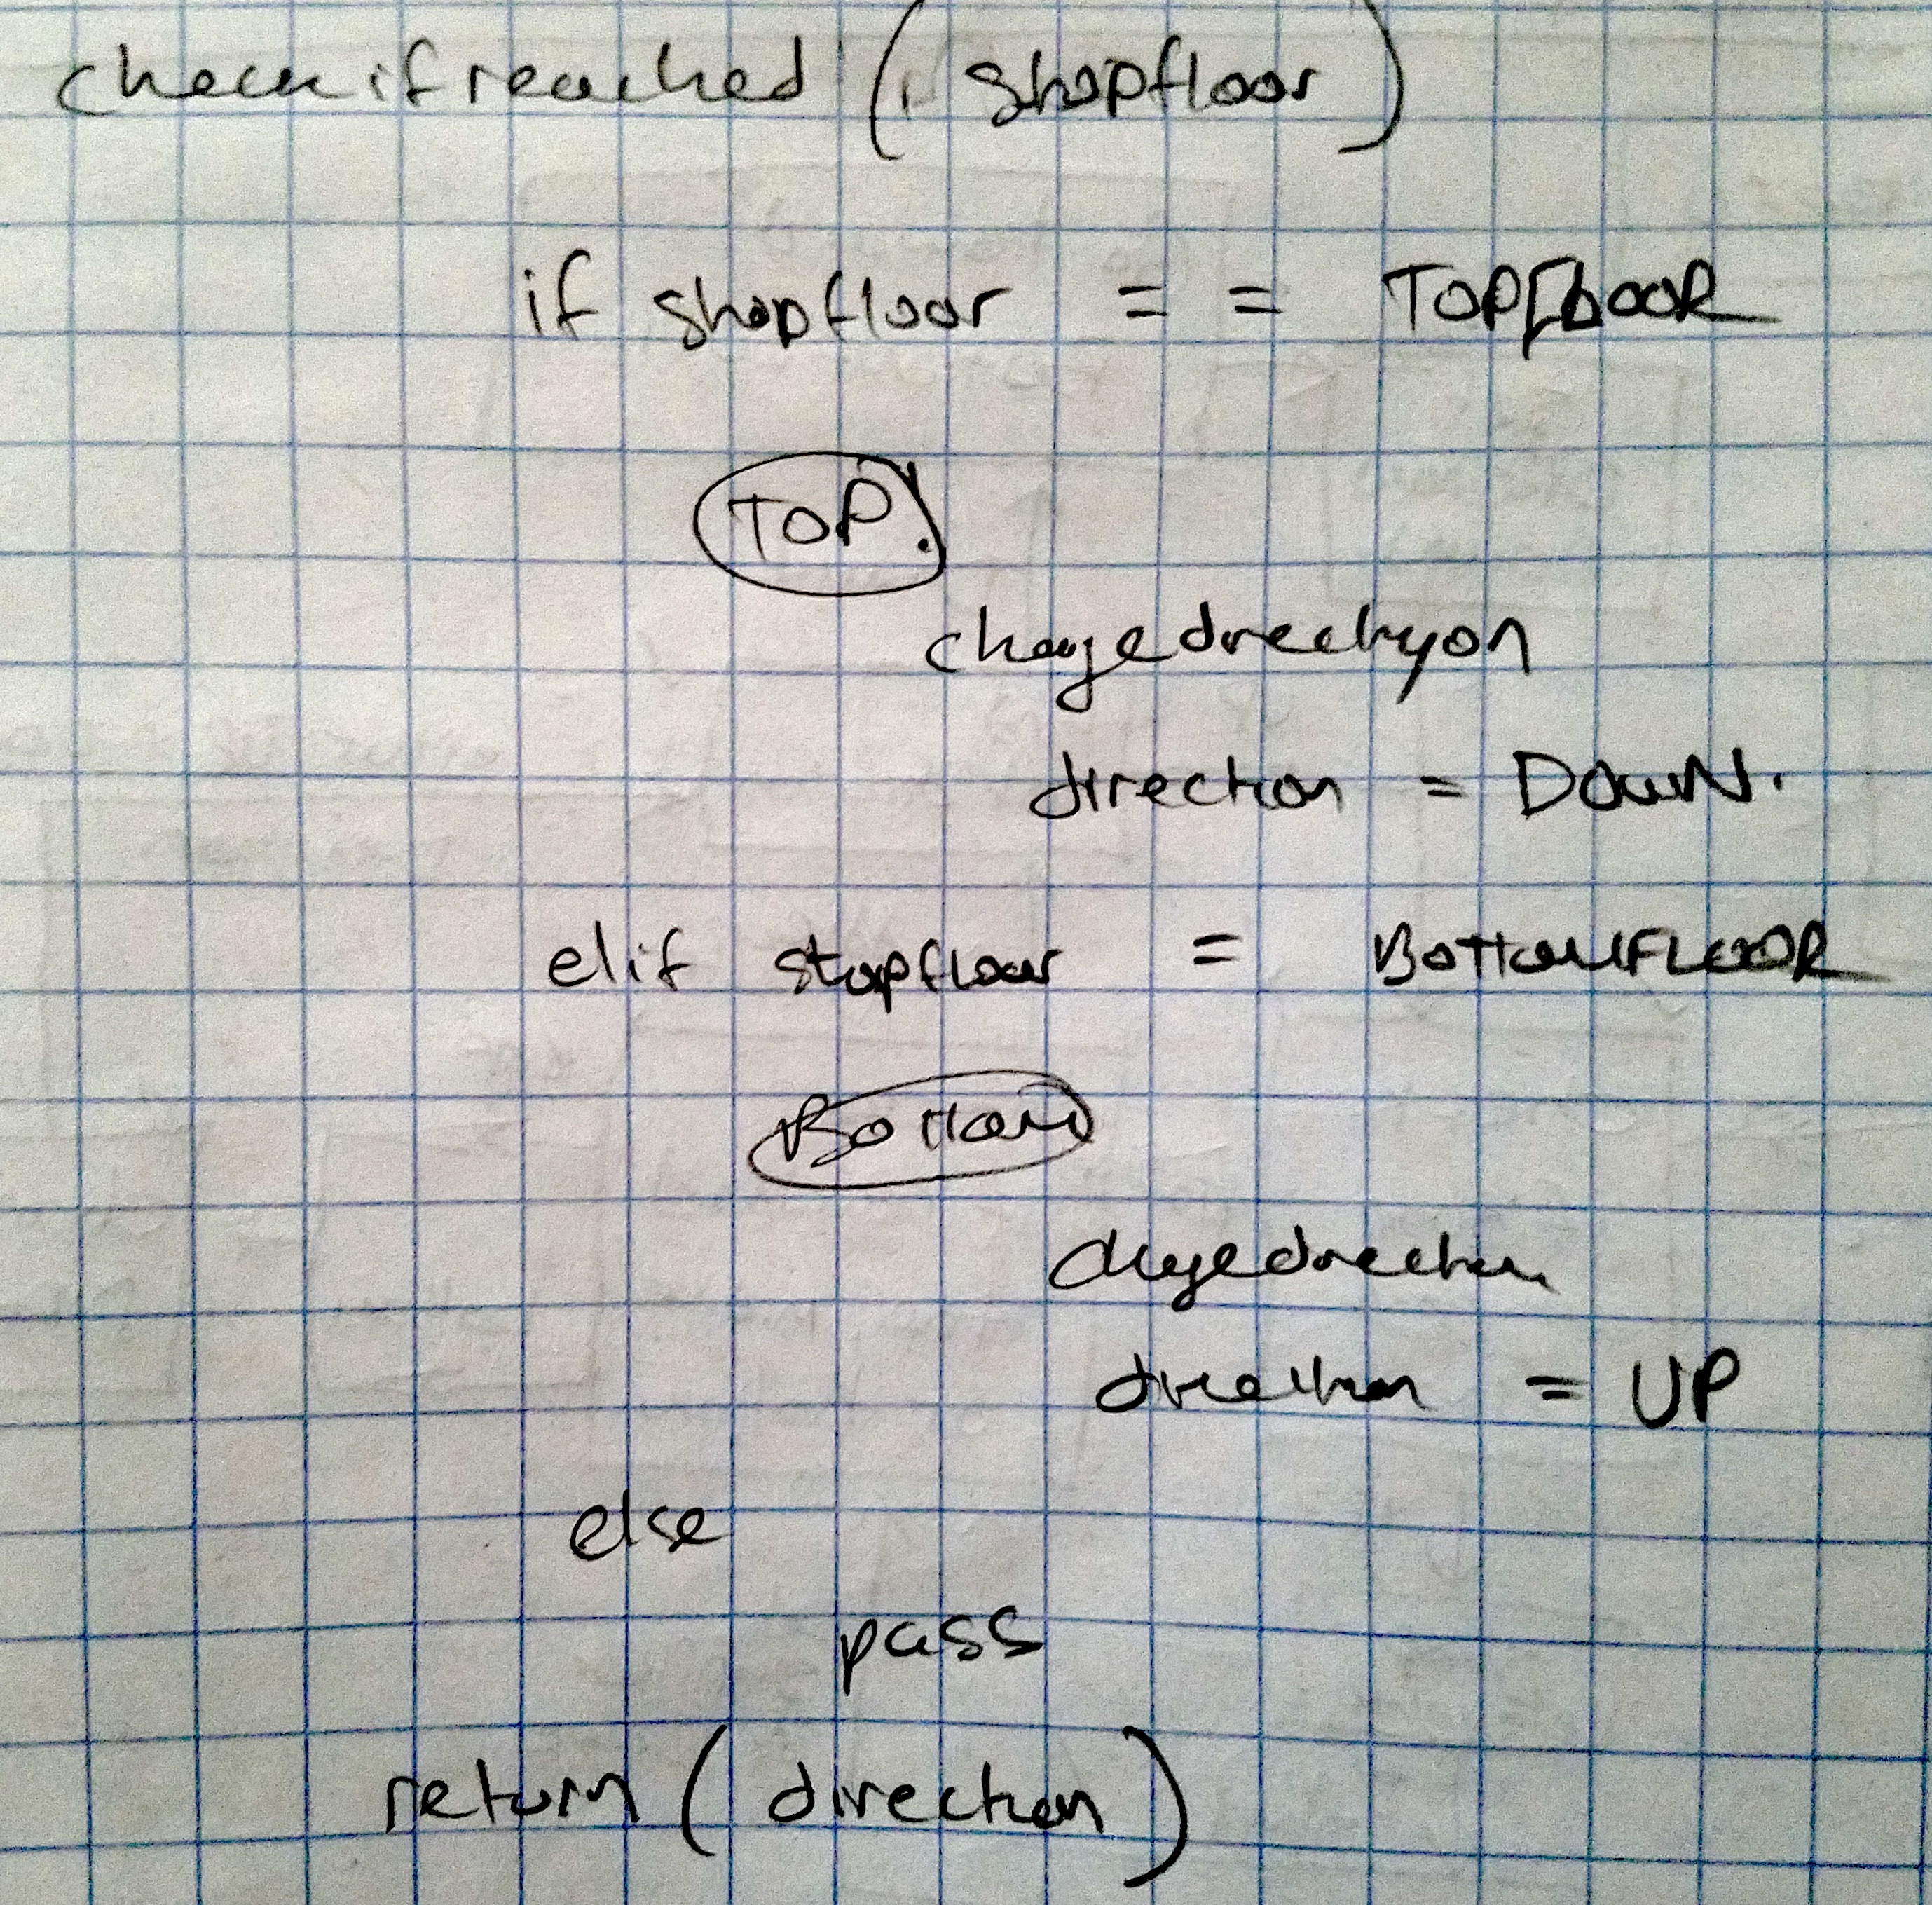 checkifreached ( shopfloor)
if shopfloor == TOPFLOOR
TOP!
changedirectyon
direction = DOWN.
elif stopfloor = BOTTOMFLOOR
BOTTOM
changedirection
direction = UP
else
pass
return (direction)